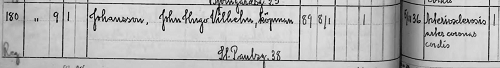 180 " 9 1 Johansson, John Hugo Vilhelm, köpman 89 8/1 1 1 8/1 36 Arteriosclerosis
arter. coronar.
cordis
St. Paulsg. 38